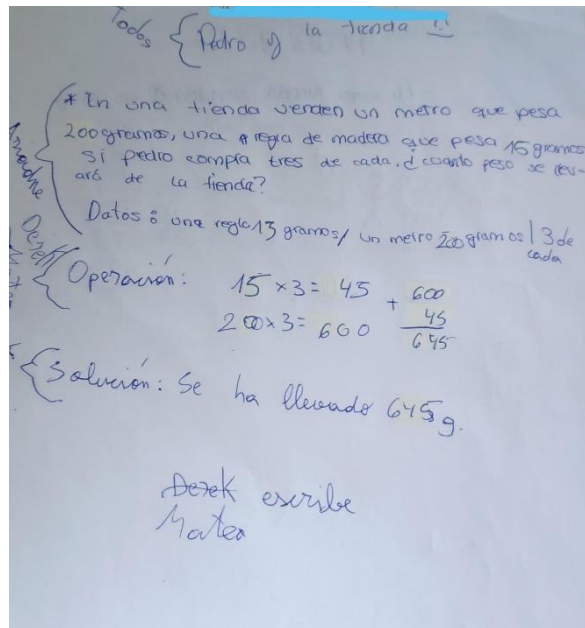 Todos { Pedro y la tienda
* En una tienda venden un metro que pesa
200 gramos, una regla de madera que pesa 15 gramos
Si pedro compra tres de cada. ¿cuanto peso se llev-
ará de la tienda?
Datos: una regla 15 gramos / un metro 200 gramos | 3 de
cada
Derek
Operación: 15 x 3 = 45 + 600
200 x 3 = 600 45
645
Solución: Se ha llevado 645 g.
Derek escribe
Mateo